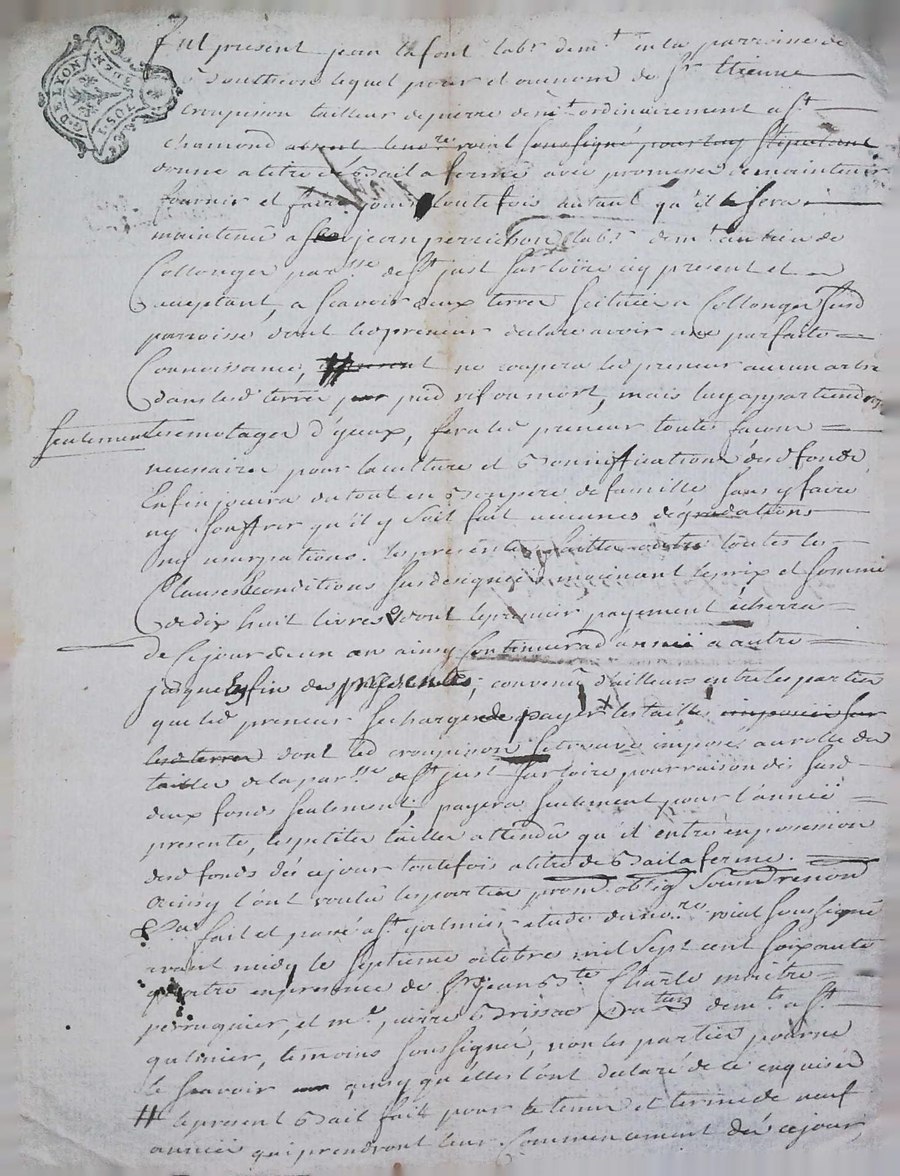 G. DE LYON
1. SOL
Fut present jean lafont labr demt en la parroisse de
Boutteon lequel pour et au nom de Sr Etienne
Croupison tailleur de pierre demt ordinairement a St
chamond absent le nore roial soussigné pour luy stipulant
donne a titre de bail a ferme avec promesse de maintenir
fournir et faire jouir toutefois autant qu'il le sera
maintenu a jean perrichon labr demt au lieu de
Collonges parsse de St just sur loire icy present et
acceptant, a scavoir deux terres scituées a Collonges susd
parroisse dont led preneur declare avoir une parfaite
Connoissance, ne coupera led preneur aucun arbre
dans lesd terres par pied vif ou mort, mais luy appartiendra
seulement les emotages d'yceux, fera led preneur toutes facons
necessaires pour la culture et bonniffications desd fonds,
Enfin jouira du tout en bon pere de famille sans y faire
ny souffrir qu'il y soit fait aucunes degradations
ny usurpations. les presentes faittes outre toutes les
Clauses & conditions sus designées moienant le prix et somme
de dix huit livres dont le premier payement écherra
de ce jour en un an ainsy continuera d'année a autre
jusques a fin des presentes; convenu d'ailleurs entre les parties
que led preneur se charge de payer les tailles imposées sur
lesd terres dont led croupison se trouve imposé au rolle des
tailles de la parsse de St just sur loire pour raison des susd
deux fonds seulement, payera seulement pour l'année
presente, les petites tailles attendu qu'il entre en possession
desd fonds dès ce jour toutefois a titre de bail a ferme.
Ainsy l'ont voulu les parties prom. oblig. Soum. renon
&a fait et passé a St galmier etude du nore roial soussigné
avant midy le septieme octobre mil sept cent soixante
quatre en presence de Sr jean Bte Charle maitre
perruquier, et me pierre Brissac demts a St
galmier, temoins soussignés, non les parties pour ne
le scavoir ainsy qu'elles l'ont declaré de ce enquises
# le present bail fait pour le tems et terme de neuf
années qui prendront leur Commencement dès ce jour,